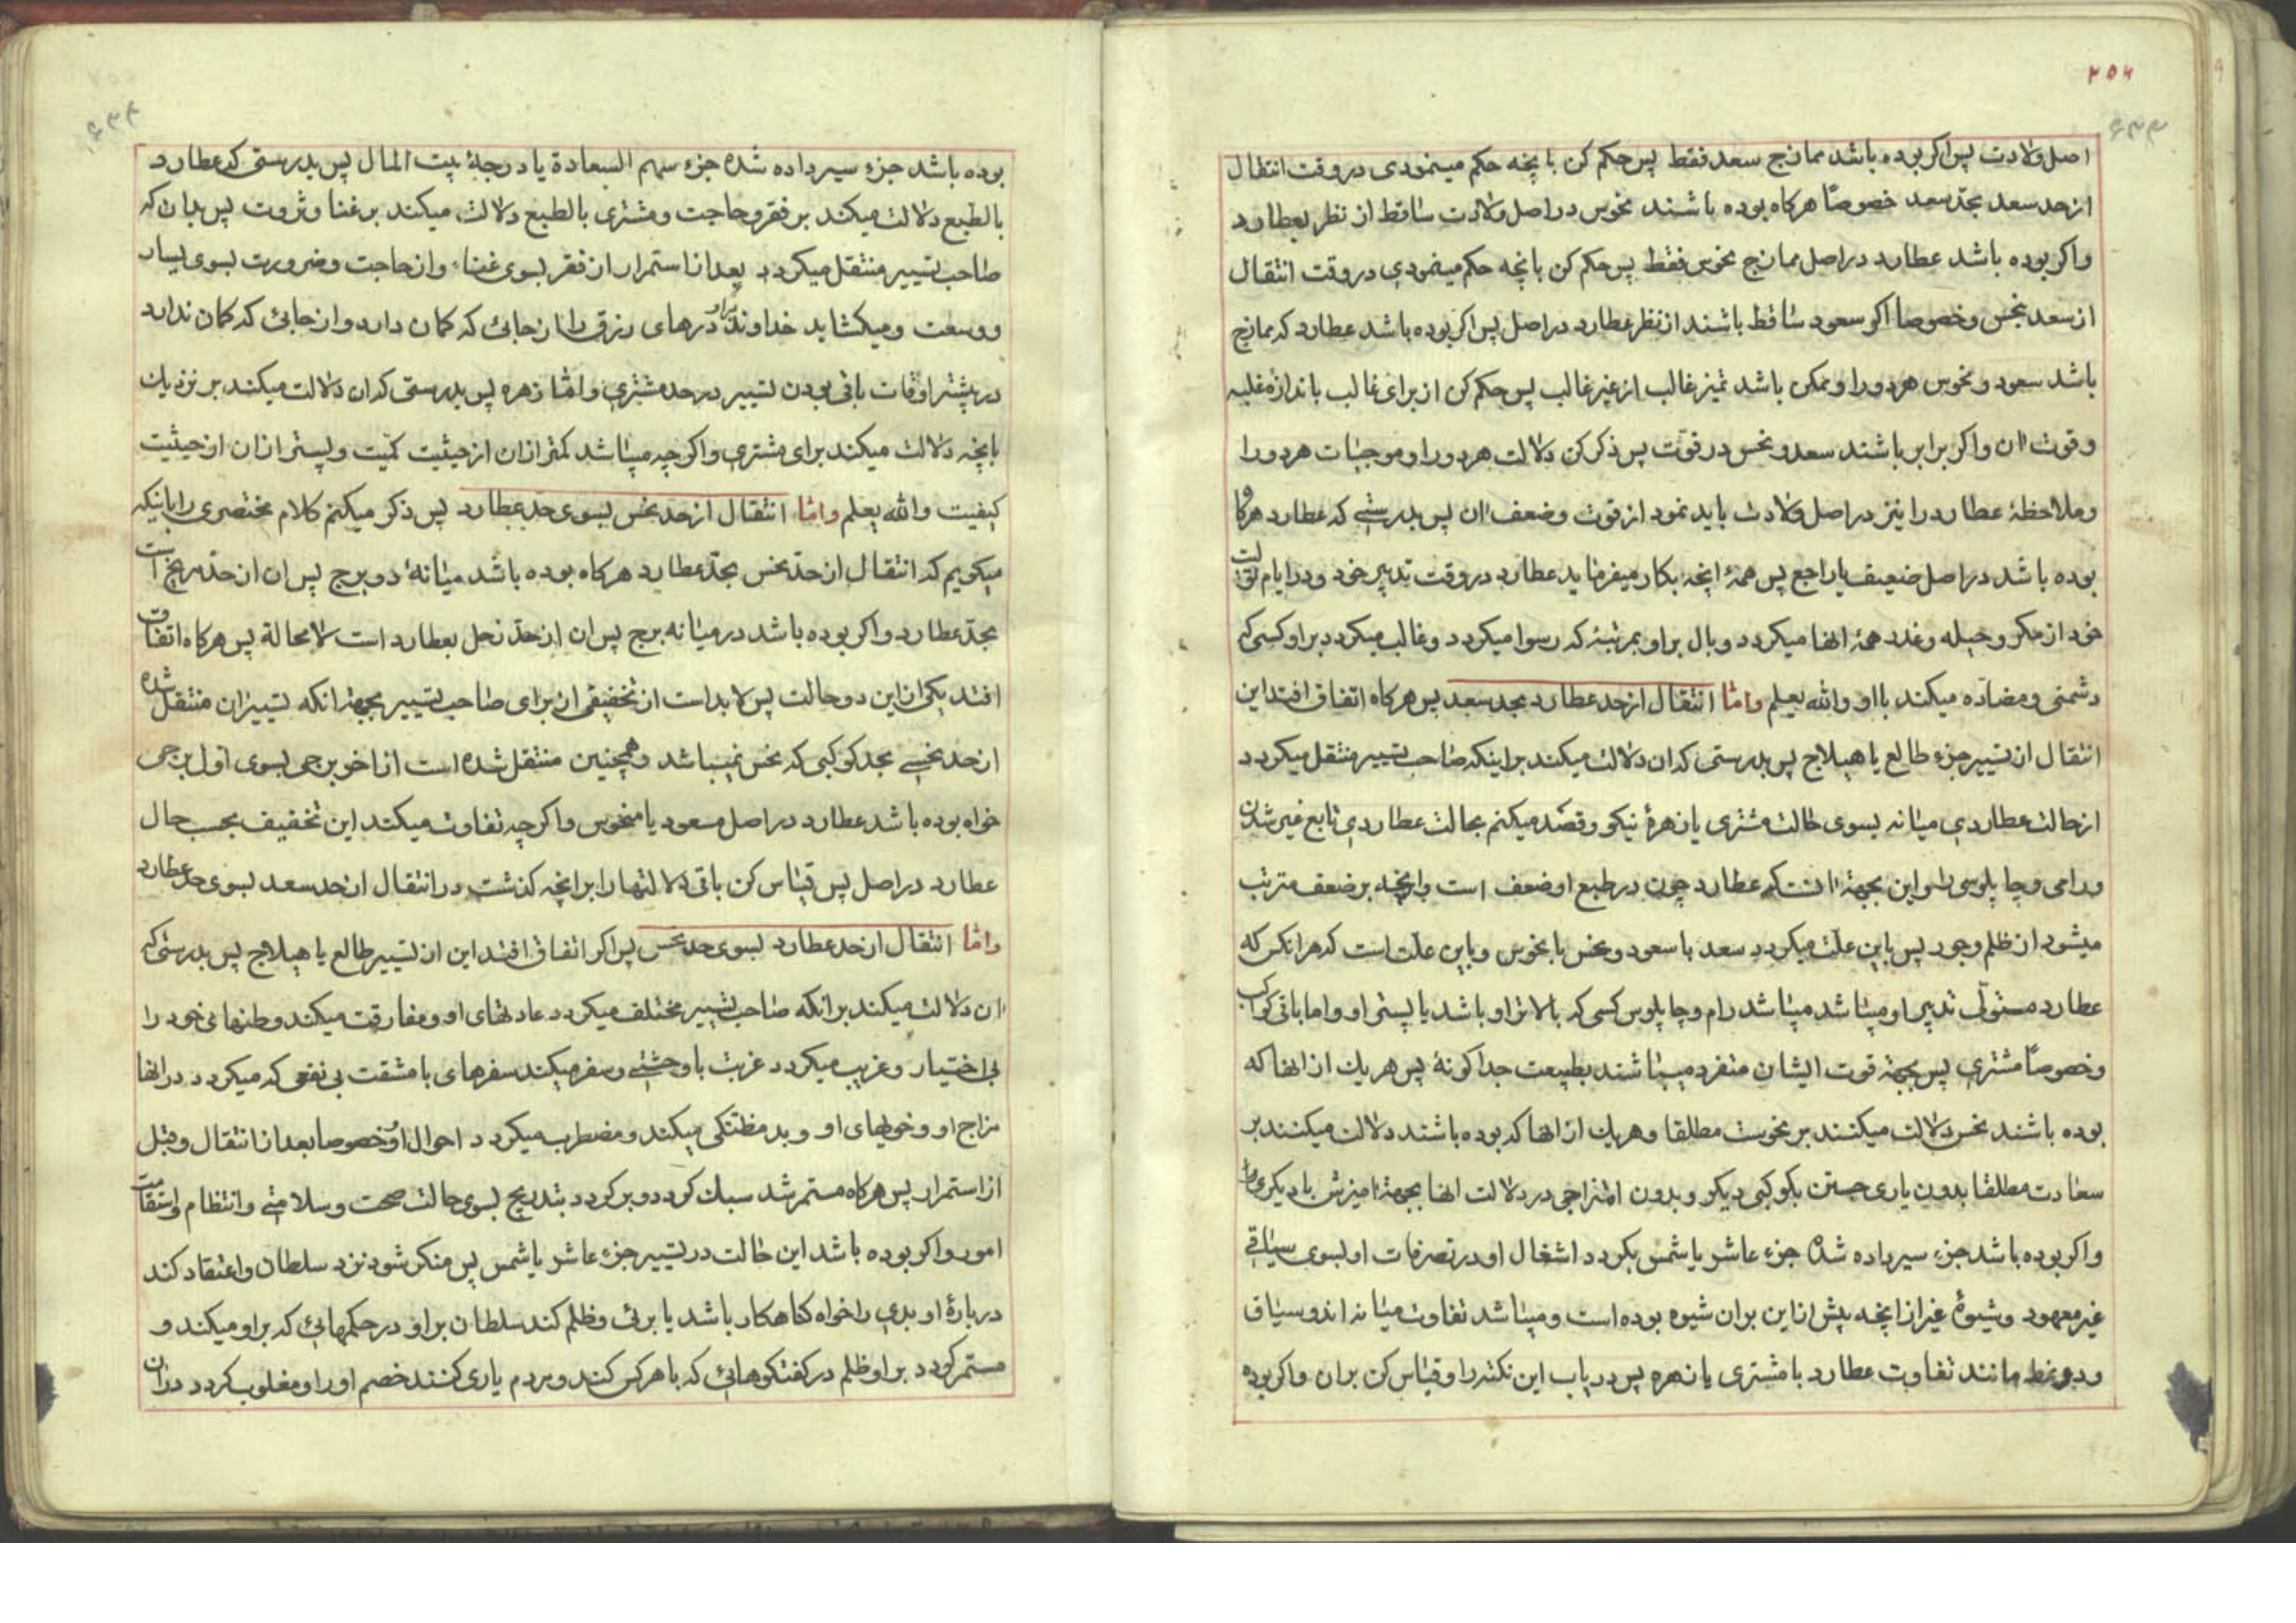 ۲۵۶
۶۳۳
اصل ولادت پس اکر بوده باشد ممازج سعد فقط پس حکم کن بآنچه حکم مینمودی در وقت انتقال
از حد سعد بحد سعد خصوصاً هرکاه بوده باشند نحوس در اصل ولادت ساقط از نظر بعطارد
واکر بوده باشد عطارد در اصل ممازج نحوس فقط پس حکم کن بانچه حکم مینمودی در وقت انتقال
از سعد بنحس وخصوصا اکر سعود ساقط باشند از نظر عطارد در اصل پس اکر بوده باشد عطارد که ممازج
باشد سعود و نحوس هر دو را و ممکن باشد تمیز غالب از غیر غالب پس حکم کن از برای غالب باندازه غلبه
وقوت ان واکر برابر باشند سعد و نحس در قوّت پس ذکر کن دلالت هر دو را و موجبات هر دو را
وملاحظهٔ عطارد را نیز در اصل ولادت باید نمود از قوت وضعف ان پس بدرستی که عطارد هرکاه
بوده باشد در اصل ضعیف یا راجع پس همهٔ انچه بکار میفرماید عطارد در وقت تدبیر خود و در ایام
خود از مکر و حیله وغدر همهٔ انها میکردد و بال براو بمرتبهٔ که رسوا میکردد وغالب میکردد براو کسی که
دشمنی ومضاده میکند با او والله یعلم واما انتقال از حد عطارد بحد سعد پس هرکاه اتفاق افتد این
انتقال از تسییر جزء طالع یا هیلاج پس بدرستی که ان دلالت میکند براینکه صاحب تسییر منتقل میکردد
از حالت عطاردی میانه بسوی حالت مشتری یا زهرهٔ نیکو وقصد میکنم بحالت عطاردی تابع غیر شدن
ورامی وچاپلوسی را واین بجهة انست که عطارد چون در طبع او ضعف است وانچه بر ضعف مترتب
میشود از ظلم وجور پس باین علت میکردد سعد با سعود ونحس با نحوس وباین علت است که هر انکس که
عطارد مستولی تدبیر او میباشد میباشد رام وچاپلوس کسی که بالاتر او باشد یا پستر او واما باقی کواکب
وخصوصاً مشتری پس بجهة قوت ایشان منفرد میباشند بطبیعت جداکونهٔ پس هر یك از انها که
بوده باشند نحس دلالت میکنند بر نحوست مطلقا وهر یك از انها که بوده باشند دلالت میکنند بر
سعادت مطلقا بدون یاری جستن بکوکبی دیکر وبدون امتزاجی در دلالت انها بجهة امیزش با دیکری
واکر بوده باشد جزء سیر داده شدهٔ جزء عاشر یا شمس بکردد اشغال او در تصرفات او بسوی سیاقی
غیر معهود وشیوهٔ غیر از انچه پیش از این بران شیوه بوده است ومیباشد تفاوت میانه اندو سیاق
ودو نمط مانند تفاوت عطارد با مشتری یا زهره پس دریاب این نکته را وقیاس کن بران واکر بوده
بوده باشد جزء سیر داده شده جزء سهم السعادة یا درجهٔ بیت المال پس بدرستی که عطارد
بالطبع دلالت میکند بر فقر وحاجت ومشتری بالطبع دلالت میکند بر غنا وثروت پس بدان که
صاحب تسییر منتقل میکردد بعد از استمرار ان از فقر بسوی غناء وازحاجت وضرورت بسوی یسار
ووسعت ومیکشاید خداوند براو درهای رزق را از جائی که کمان دارد واز جائی که کمان ندارد
در بیشتر اوقات باقی بودن تسییر در حد مشتری واما زهره پس بدرستی که ان دلالت میکند بر نزدیك
بانچه دلالت میکند برای مشتری واکرچه میباشد کمتر ازان از حیثیت کمّیت وپستر ازان از حیثیت
کیفیت والله یعلم واما انتقال از حد نحس بسوی حد عطارد پس ذکر میکنم کلام مختصری را باینکه
میکویم که انتقال از حد نحس بحد عطارد هرکاه بوده باشد میانهٔ دو برج پس ان از حد مریخ است
بحد عطارد واکر بوده باشد در میانه برج پس ان از حد زحل بعطارد است لامحالة پس هرکاه اتفاق
افتد یکی از این دو حالت پس لابد است از تخفیفی از برای صاحب تسییر بجهة انکه تسییر ان منتقل شده
از حد نحسی بحد کوکبی که نحس نمیباشد وهمچنین منتقل شده است از اخر برجی بسوی اول برجی
خواه بوده باشد عطارد در اصل مسعود یا منحوس واکرچه تفاوت میکند این تخفیف بحسب حال
عطارد در اصل پس قیاس کن باقی دلالتها را بر انچه کذشت در انتقال از حد سعد بسوی حد عطارد
واما انتقال از حد عطارد بسوی حد نحس پس اکر اتفاق افتد این از تسییر طالع یا هیلاج پس بدرستی که
ان دلالت میکند برانکه صاحب تسییر مختلف میکردد عادتهای او ومفارقت میکند وطنهای خود را
بی اختیار وغریب میکردد غربت با وحشتی وسفر میکند سفرهای با مشقت بی نفعی که میکردد در انها
مزاج او وخویهای او وبد مظنکی میکند ومضطرب میکردد احوال او خصوصا بعد از انتقال وقبل
از استمرار پس هرکاه مستمر شد سبك کردد وبرکردد بتدریج بسوی حالت صحت وسلامتی وانتظام واستقامت
امور واکر بوده باشد این حالت در تسییر جزء عاشر یا شمس پس منکر شود نزد سلطان واعتقاد کند
دربارهٔ او بدی را خواه کناهکار باشد یا بری وظلم کند سلطان براو در حکمهایی که براو میکند و
مستمر کردد براو ظلم در کفتکوهائی که با هر کس کند ومردم یاری کنند خصم او را ومغلوب کردد دران